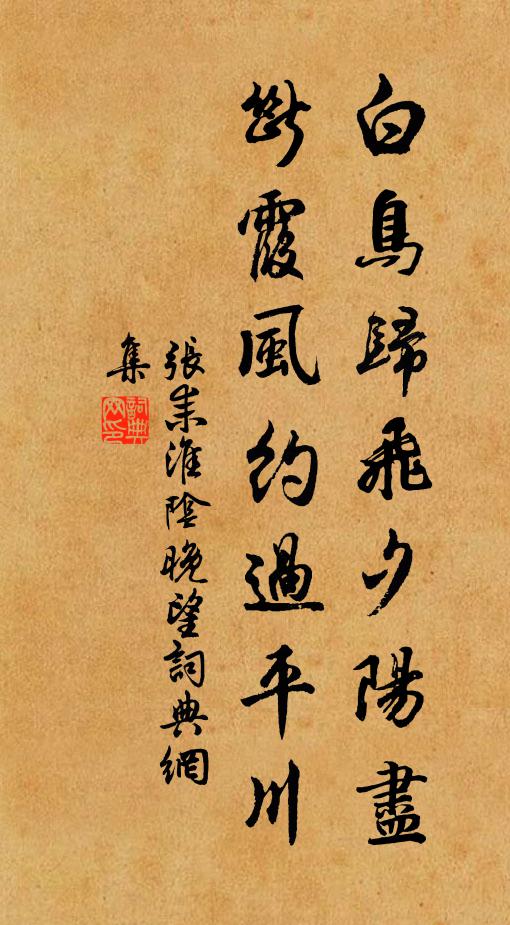 白鳥歸飛夕陽盡
斷霞風約過平川
張耒淮陰晚望詞典網
集
詞典網印